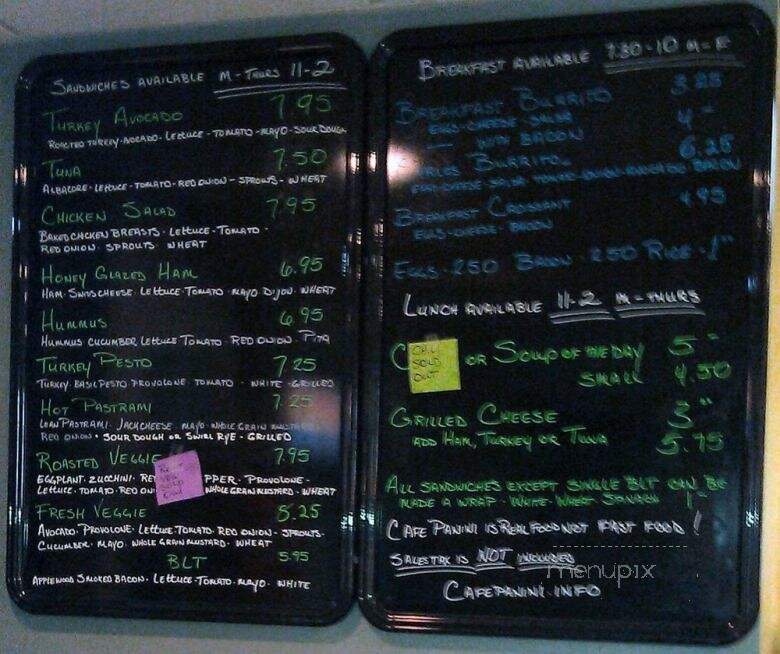 SANDWICHES AVAILABLE M-THURS 11-2
TURKEY AVOCADO 7.95
ROASTED TURKEY · AVOCADO · LETTUCE - TOMATO - MAYO - SOUR DOUGH
TUNA 7.50
ALBACORE · LETTUCE · TOMATO · RED ONION - SPROUTS - WHEAT
CHICKEN SALAD 7.95
BAKED CHICKEN BREASTS · LETTUCE · TOMATO -
RED ONION · SPROUTS · WHEAT
HONEY GLAZED HAM 6.95
HAM · SWISS CHEESE · LETTUCE · TOMATO · MAYO · DIJON · WHEAT
HUMMUS 6.95
HUMMUS · CUCUMBER · LETTUCE · TOMATO · RED ONION · PITA
TURKEY PESTO 7.25
TURKEY · BASIL PESTO · PROVOLONE · TOMATO - WHITE - GRILLED
HOT PASTRAMI 7.25
LEAN PASTRAMI · JACK CHEESE · MAYO · WHOLE GRAIN MUSTARD
RED ONION · SOUR DOUGH OR SWIRL RYE - GRILLED
ROASTED VEGGIE 7.95
EGGPLANT · ZUCCHINI · RE PPER · PROVOLONE ·
LETTUCE · TOMATO · RED ON WHOLE GRAIN MUSTARD · WHEAT
SOLD
FRESH VEGGIE 5.25
AVOCADO · PROVOLONE · LETTUCE · TOMATO · RED ONION - SPROUTS -
CUCUMBER · MAYO · WHOLE GRAIN MUSTARD · WHEAT
BLT 5.95
APPLEWOOD SMOKED BACON · LETTUCE · TOMATO · MAYO · WHITE
BREAKFAST AVAILABLE 7:30-10 M-F
BREAKFAST BURRITO 3.25
EGGS · CHEESE · SALSA 4 -
WITH BACON
BURRITO 6.25
EGG · CHEESE · SALSA · ONION · AVOCADO · BACON
BREAKFAST CROISSANT 4.95
EGGS · CHEESE · BACON
EGGS · 2.50 BACON · 2.50 RICE · 1
LUNCH AVAILABLE 11-2 M-THURS
C OR SOUP OF THE DAY 5 -
CHILI
SOLD
OUT
SMALL 4.50
GRILLED CHEESE 3
ADD HAM, TURKEY OR TUNA 5.75
ALL SANDWICHES EXCEPT SINGLE BLT CAN BE
MADE A WRAP - WHITE - WHEAT SPINACH 1 -
CAFE PANINI IS REAL FOOD NOT FAST FOOD!
SALES TAX IS NOT INCLUDED
menupix
CAFEPANINI.INFO